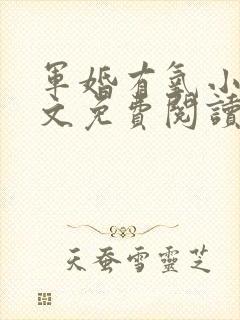 軍婚有氣 小
文免費閱讀
天蚕雪靈芝